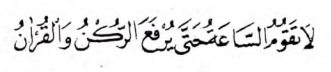 لَا تَقُومُ السَّاعَةُ حَتَّى يُرْفَعَ الرُّكْنُ وَالْقُرْاٰنُ